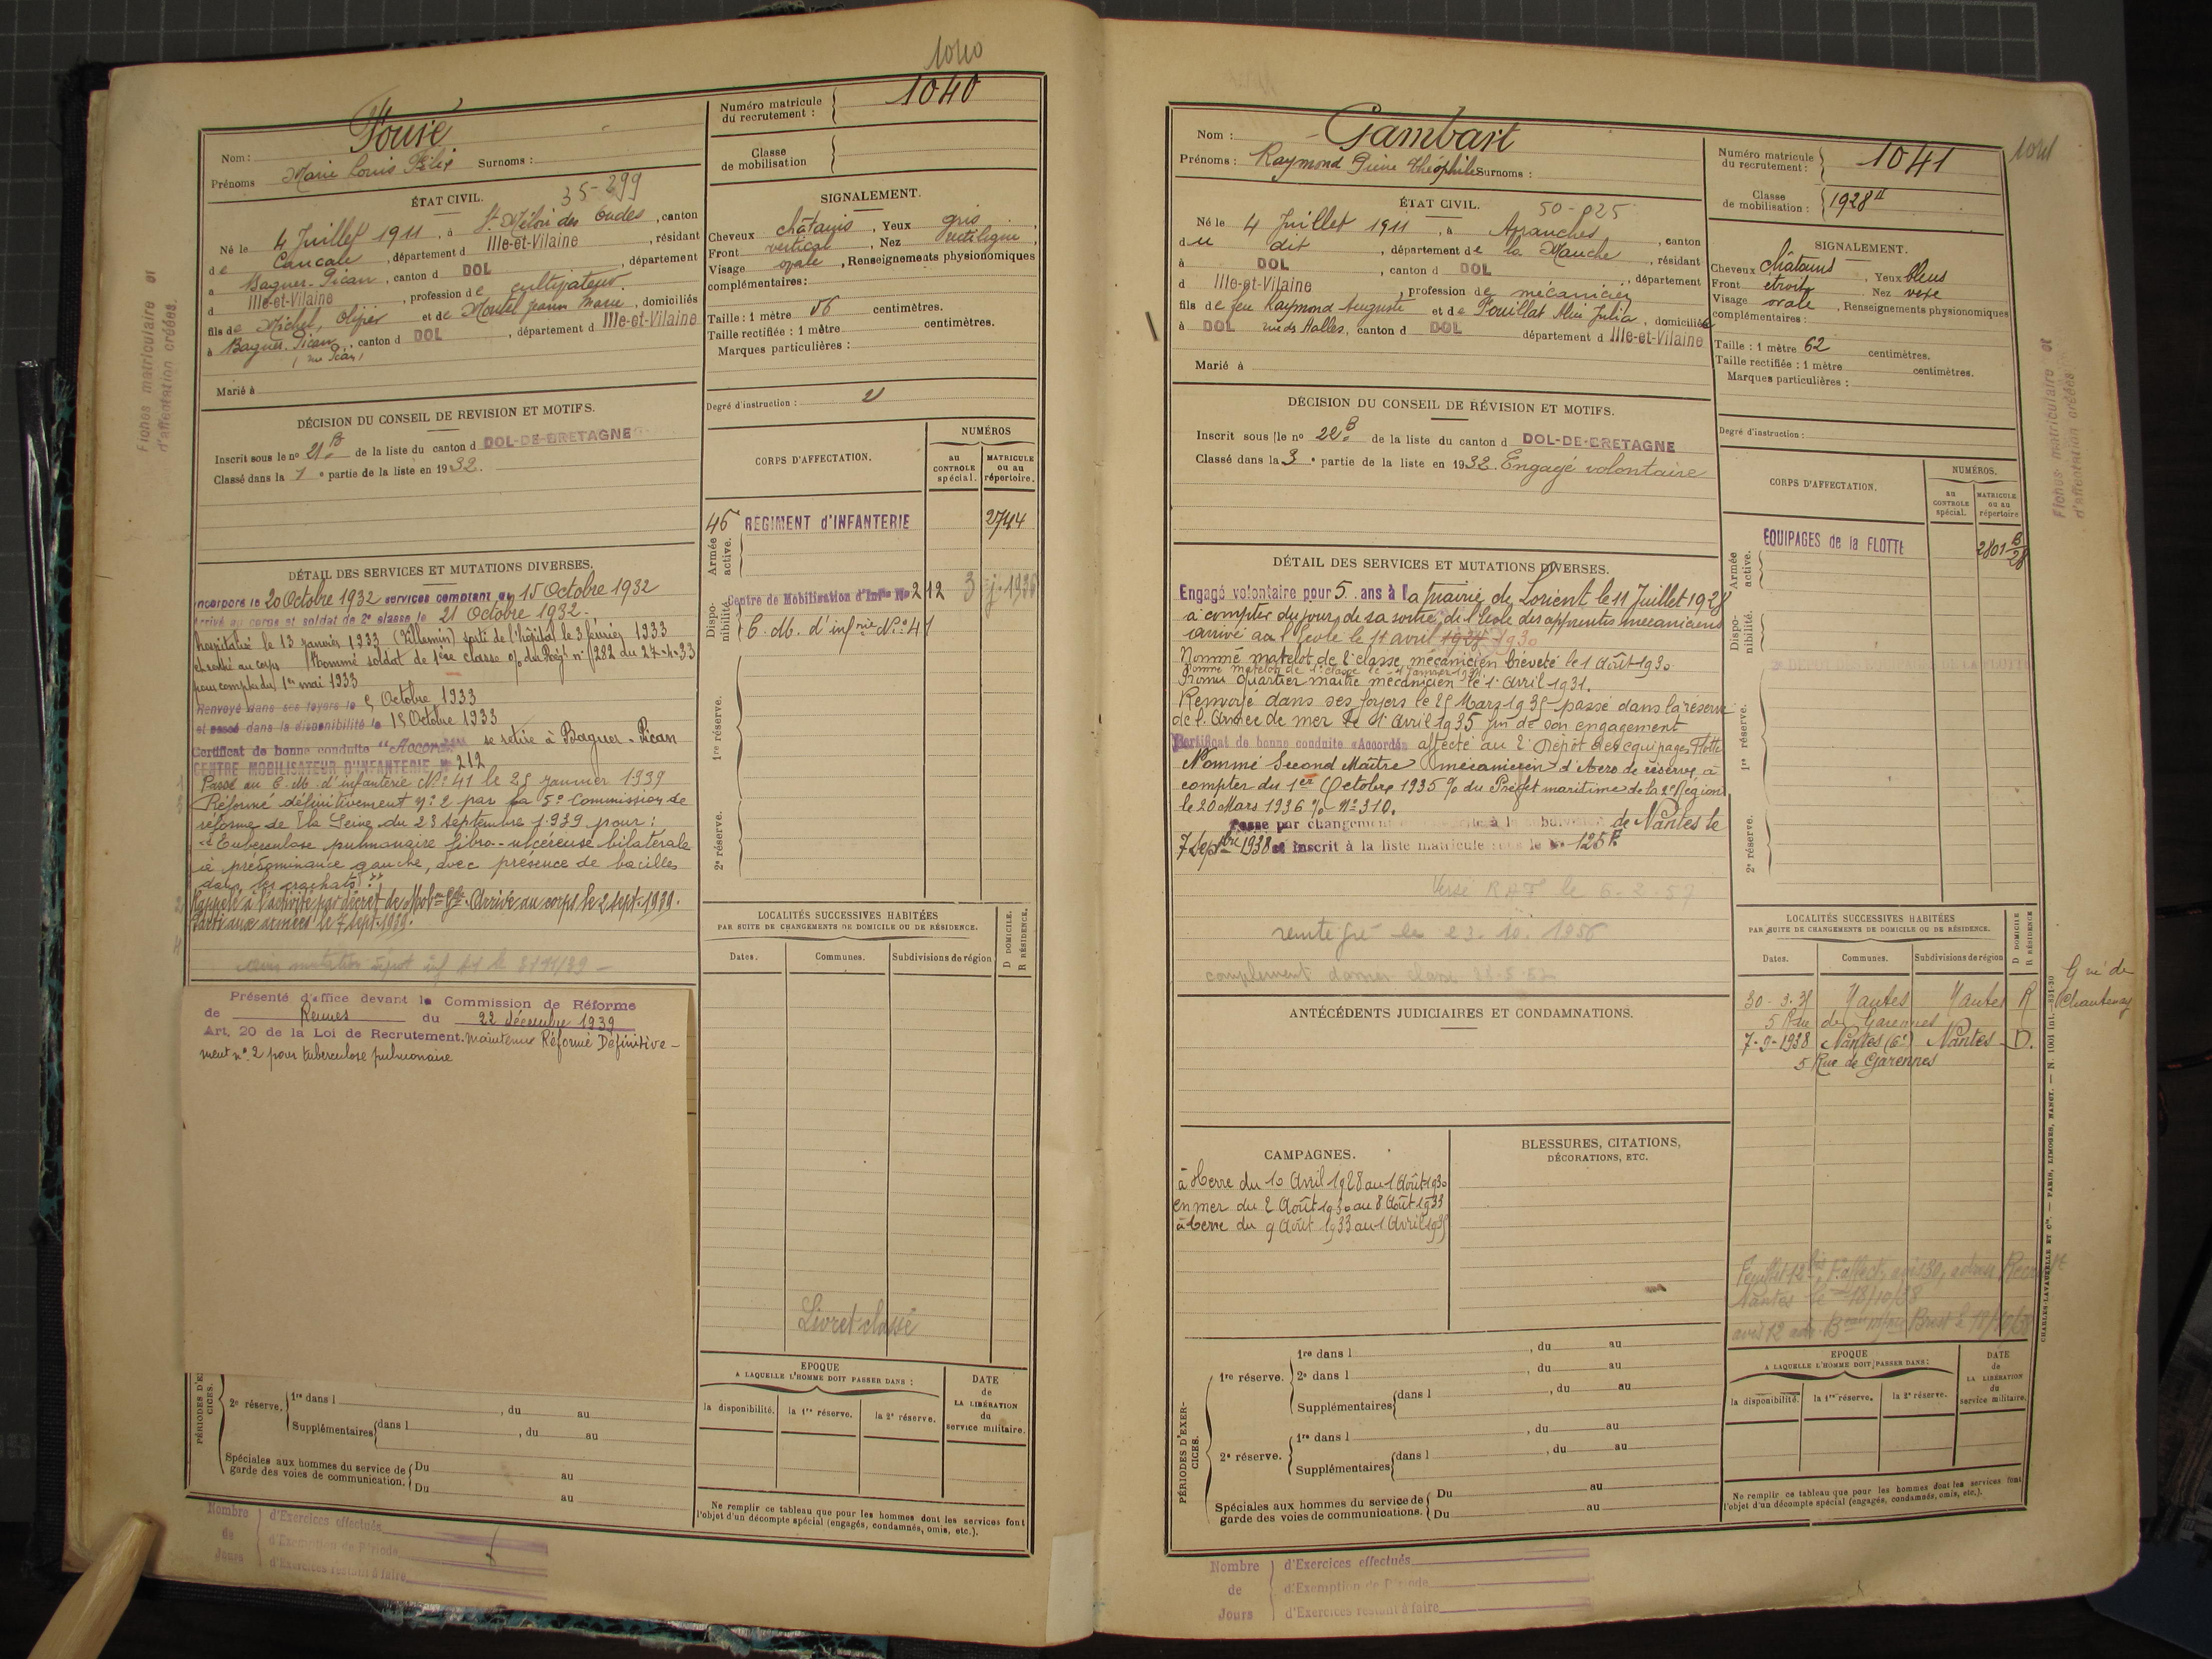 1040
Nom :
Prénoms Marie Louis Surnoms :
ÉTAT CIVIL.
35-299
Né le 4 Juillet 1911, à St Méloir des Ondes, canton
de Cancale, département d Ille-et-Vilaine, résidant
à Baguer-Pican, canton d DOL, département
d Ille-et-Vilaine, profession de cultivateur.
fils de Michel, et de Jeanne Marie, domiciliés
à Baguer-Pican, canton d DOL, département d Ille-et-Vilaine
Marié à
Numéro matricule du recrutement : 1040
Classe de mobilisation
SIGNALEMENT.
Cheveux châtains, Yeux gris,
Front vertical, Nez rectiligne,
Visage ovale, Renseignements physionomiques
complémentaires :
Taille : 1 mètre 56 centimètres.
Taille rectifiée : 1 mètre centimètres.
Marques particulières :
Degré d'instruction : 2
DÉCISION DU CONSEIL DE REVISION ET MOTIFS.
Inscrit sous le no 21 B de la liste du canton d DOL-DE-BRETAGNE
Classé dans la 1e partie de la liste en 1932.
CORPS D'AFFECTATION.
NUMÉROS
au CONTROLE spécial.
MATRICULE ou au répertoire.
Armée active.
46 REGIMENT d'INFANTERIE 2744
Disponibilité.
Centre de Mobilisation d'Infie No 212
C. M. d'infrie No 41
1re réserve.
2e réserve.
DÉTAIL DES SERVICES ET MUTATIONS DIVERSES.
Incorporé le 20 Octobre 1932 services comptent du 15 Octobre 1932
Arrivé au corps et soldat de 2e classe le 21 Octobre 1932.
hospitalisé le 13 janvier 1933 (Villemin) sorti de l'hôpital le 3 février 1933
et rentré au corps Nommé soldat de 1ère classe % du Régt n° 282 du 27-4-33
pour compter du 1er mai 1933
Renvoyé dans ses foyers le 5 Octobre 1933
et passé dans la disponibilité le 15 Octobre 1933
Certificat de bonne conduite "Accordé" se retire à Baguer-Pican
CENTRE MOBILISATEUR D'INFANTERIE No 212
Passé au C. M. d'infanterie No 41 le 25 janvier 1939
Réformé définitivement n° 2 par la 5e Commission de
réforme de la Seine du 23 septembre 1939 pour :
"Tuberculose pulmonaire fibro-ulcéreuse bilatérale
à prédominance gauche, avec présence de bacilles
dans les crachats."
Rappelé à l'activité par décret de Mobon Gle. Arrivé au corps le 2 sept. 1939.
Parti aux armées le 7 sept. 1939.
Présenté d'office devant la Commission de Réforme
de Rennes du 22 décembre 1939
Art. 20 de la Loi de Recrutement. maintenu Réformé Définitive-
ment n° 2 pour tuberculose pulmonaire
LOCALITÉS SUCCESSIVES HABITÉES
PAR SUITE DE CHANGEMENTS DE DOMICILE OU DE RÉSIDENCE.
D DOMICILE.
R RÉSIDENCE.
Dates. Communes. Subdivisions de région
Livret classé
EPOQUE
A LAQUELLE L'HOMME DOIT PASSER DANS :
la disponibilité. la 1re réserve. la 2e réserve.
DATE de LA LIBÉRATION du service militaire.
Ne remplir ce tableau que pour les hommes dont les services font
l'objet d'un décompte spécial (engagés, condamnés, omis, etc.).
PÉRIODES D'EXERCICES.
2e réserve. 1re dans l , du au
Supplémentaires dans l , du au
Spéciales aux hommes du service de garde des voies de communication. Du au
Du au
Nombre de Jours
d'Exercices effectués
d'Exemption de Période
d'Exercices restant à faire
Fiches matriculaire et
d'affectation créées.
Nom : Gambart
Prénoms : Raymond Pierre Théophile Surnoms :
ÉTAT CIVIL.
Né le 4 Juillet 1911, à Avranches, canton
du dit, département de la Manche, résidant
à DOL, canton d DOL, département
d Ille-et-Vilaine, profession de mécanicien
fils de feu Raymond Auguste et de Julia, domiciliés
à DOL rue des Halles, canton d DOL département d Ille-et-Vilaine
Marié à
Numéro matricule du recrutement : 1041
1041
Classe de mobilisation : 1928 II
SIGNALEMENT.
Cheveux châtains, Yeux bleus
Front étroit, Nez
Visage ovale, Renseignements physionomiques
complémentaires :
Taille : 1 mètre 62 centimètres.
Taille rectifiée : 1 mètre centimètres.
Marques particulières :
Degré d'instruction :
DÉCISION DU CONSEIL DE RÉVISION ET MOTIFS.
Inscrit sous le no 22 B de la liste du canton d DOL-DE-BRETAGNE
Classé dans la 3e partie de la liste en 1932. Engagé volontaire
CORPS D'AFFECTATION.
NUMÉROS.
au CONTROLE spécial.
MATRICULE ou au répertoire
Armée active.
EQUIPAGES de la FLOTTE 2801 B 28
Disponibilité.
1re réserve.
2e réserve.
DÉTAIL DES SERVICES ET MUTATIONS DIVERSES.
Engagé volontaire pour 5 ans à la mairie de Lorient le 11 Juillet 1928
à compter du jour de sa sortie de l'Ecole des apprentis mécaniciens
arrivé à l'Ecole le 1er avril 1930
Nommé matelot de 2e classe mécanicien breveté le 1 Août 1930
Nommé matelot de 1e classe le 1 Janvier 1931
Promu quartier maître mécanicien le 1er Avril 1931.
Renvoyé dans ses foyers le 25 Mars 1935 passé dans la réserve
de l'Armée de mer le 1er Avril 1935 fin de son engagement
Certificat de bonne conduite "Accordé" affecté au 2e Dépôt des équipages Flotte
Nommé Second Maître mécanicien d'Aéro de réserve, à
compter du 1er Octobre 1935 % du Préfet maritime de la 2e Région
le 20 Mars 1936 % No 310.
Passé par changement à la subdivision de Nantes le
7 Septbre 1938 et inscrit à la liste matricule sous le No 125 R
Versé RAT le 6-2-57
réintégré le 23.10.1956
ANTÉCÉDENTS JUDICIAIRES ET CONDAMNATIONS.
CAMPAGNES.
à terre du 10 Avril 1928 au 1 Août 1930
en mer du 2 Août 1930 au 8 Août 1933
à terre du 9 Août 1933 au 1 Avril 1935
BLESSURES, CITATIONS,
DÉCORATIONS, ETC.
LOCALITÉS SUCCESSIVES HABITÉES
PAR SUITE DE CHANGEMENTS DE DOMICILE OU DE RÉSIDENCE.
D DOMICILE
R RÉSIDENCE
Dates. Communes. Subdivisions de région
30-3-35 Nantes Nantes R
5 Rue des Garennes
7-9-1938 Nantes (6e) Nantes D.
5 Rue de Garennes
Chantenay
Nantes le 18/10/38
EPOQUE
A LAQUELLE L'HOMME DOIT PASSER DANS :
la disponibilité. la 1re réserve. la 2e réserve.
DATE de LA LIBÉRATION du service militaire.
Ne remplir ce tableau que pour les hommes dont les services font
l'objet d'un décompte spécial (engagés, condamnés, omis, etc.).
PÉRIODES D'EXERCICES.
1re réserve. 1re dans l , du au
2e dans l , du au
Supplémentaires dans l , du au
2e réserve. 1re dans l , du au
Supplémentaires dans l , du au
Spéciales aux hommes du service de garde des voies de communications. Du au
Du au
Nombre de Jours
d'Exercices effectués
d'Exemption de Période
d'Exercices restant à faire
Fiches matriculaire et
d'affectation créées
CHARLES-LAVAUZELLE ET Cie. — PARIS, LIMOGES, NANCY. — N 1001 Int.-831-30